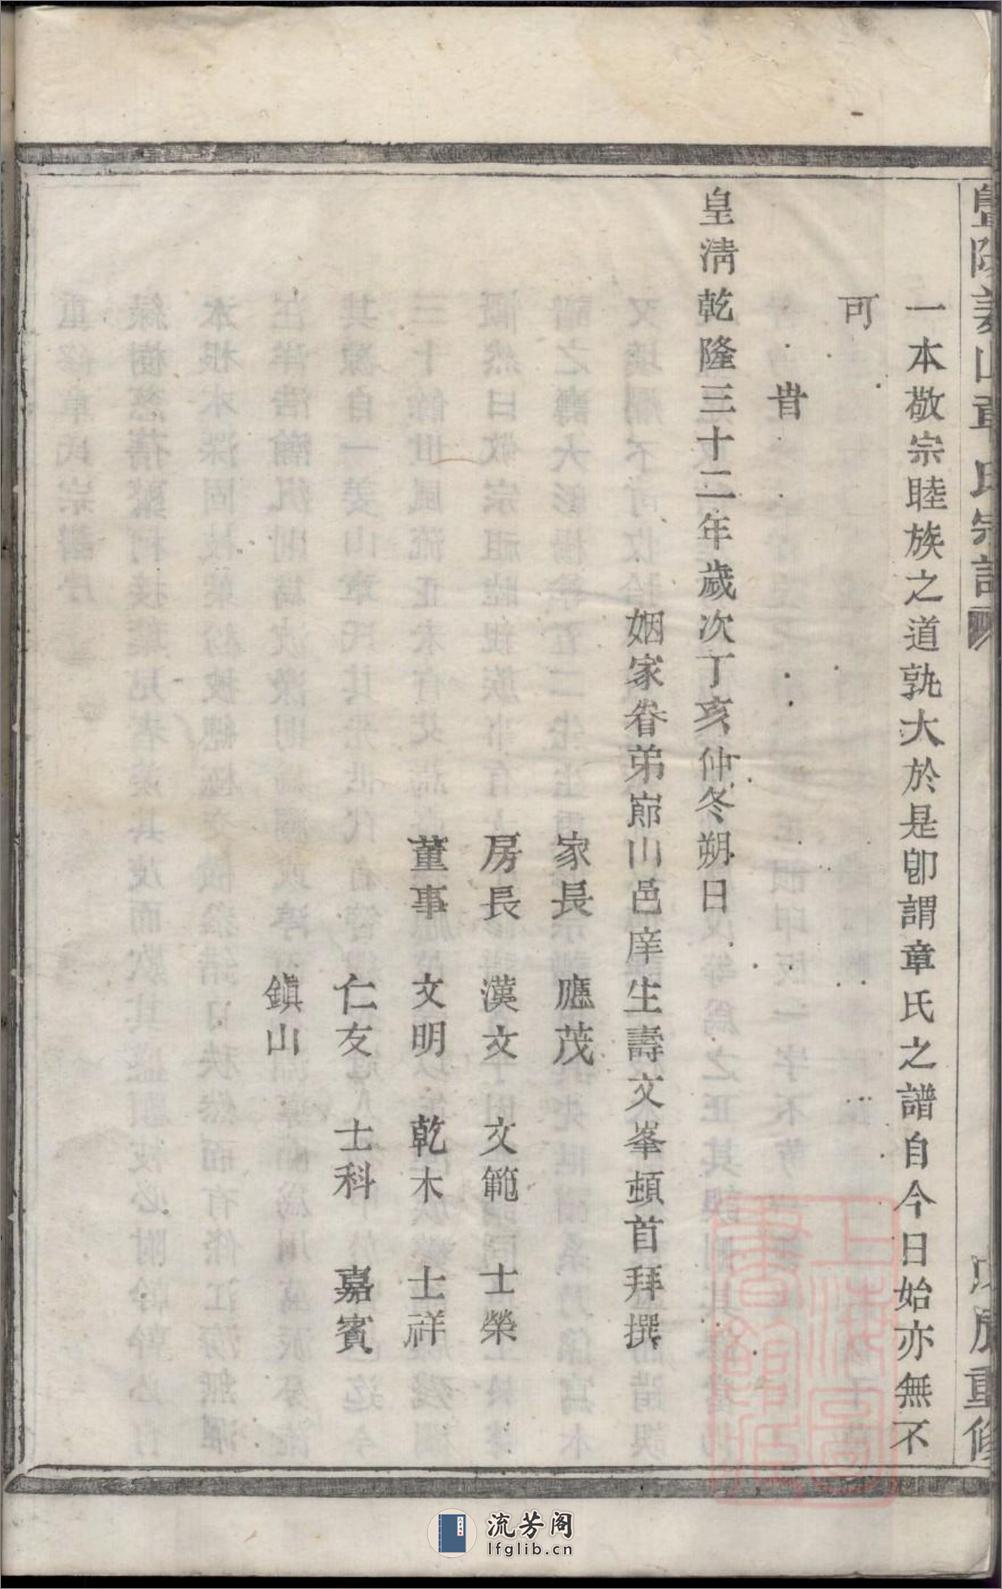 暨陽姜山章氏宗譜
重修
一本敬宗睦族之道孰大於是卽謂章氏之譜自今日始亦無不
可
旹
皇淸乾隆三十二年歲次丁亥仲冬朔日
姻家眷弟邑庠生壽文峯頓首拜撰
家長 應茂
房長 漢文 文範 士榮
董事 文明 乾木 士祥
仁友 士科 嘉賓
鎭山
上海圖書館藏
流芳阁
lfglib.cn